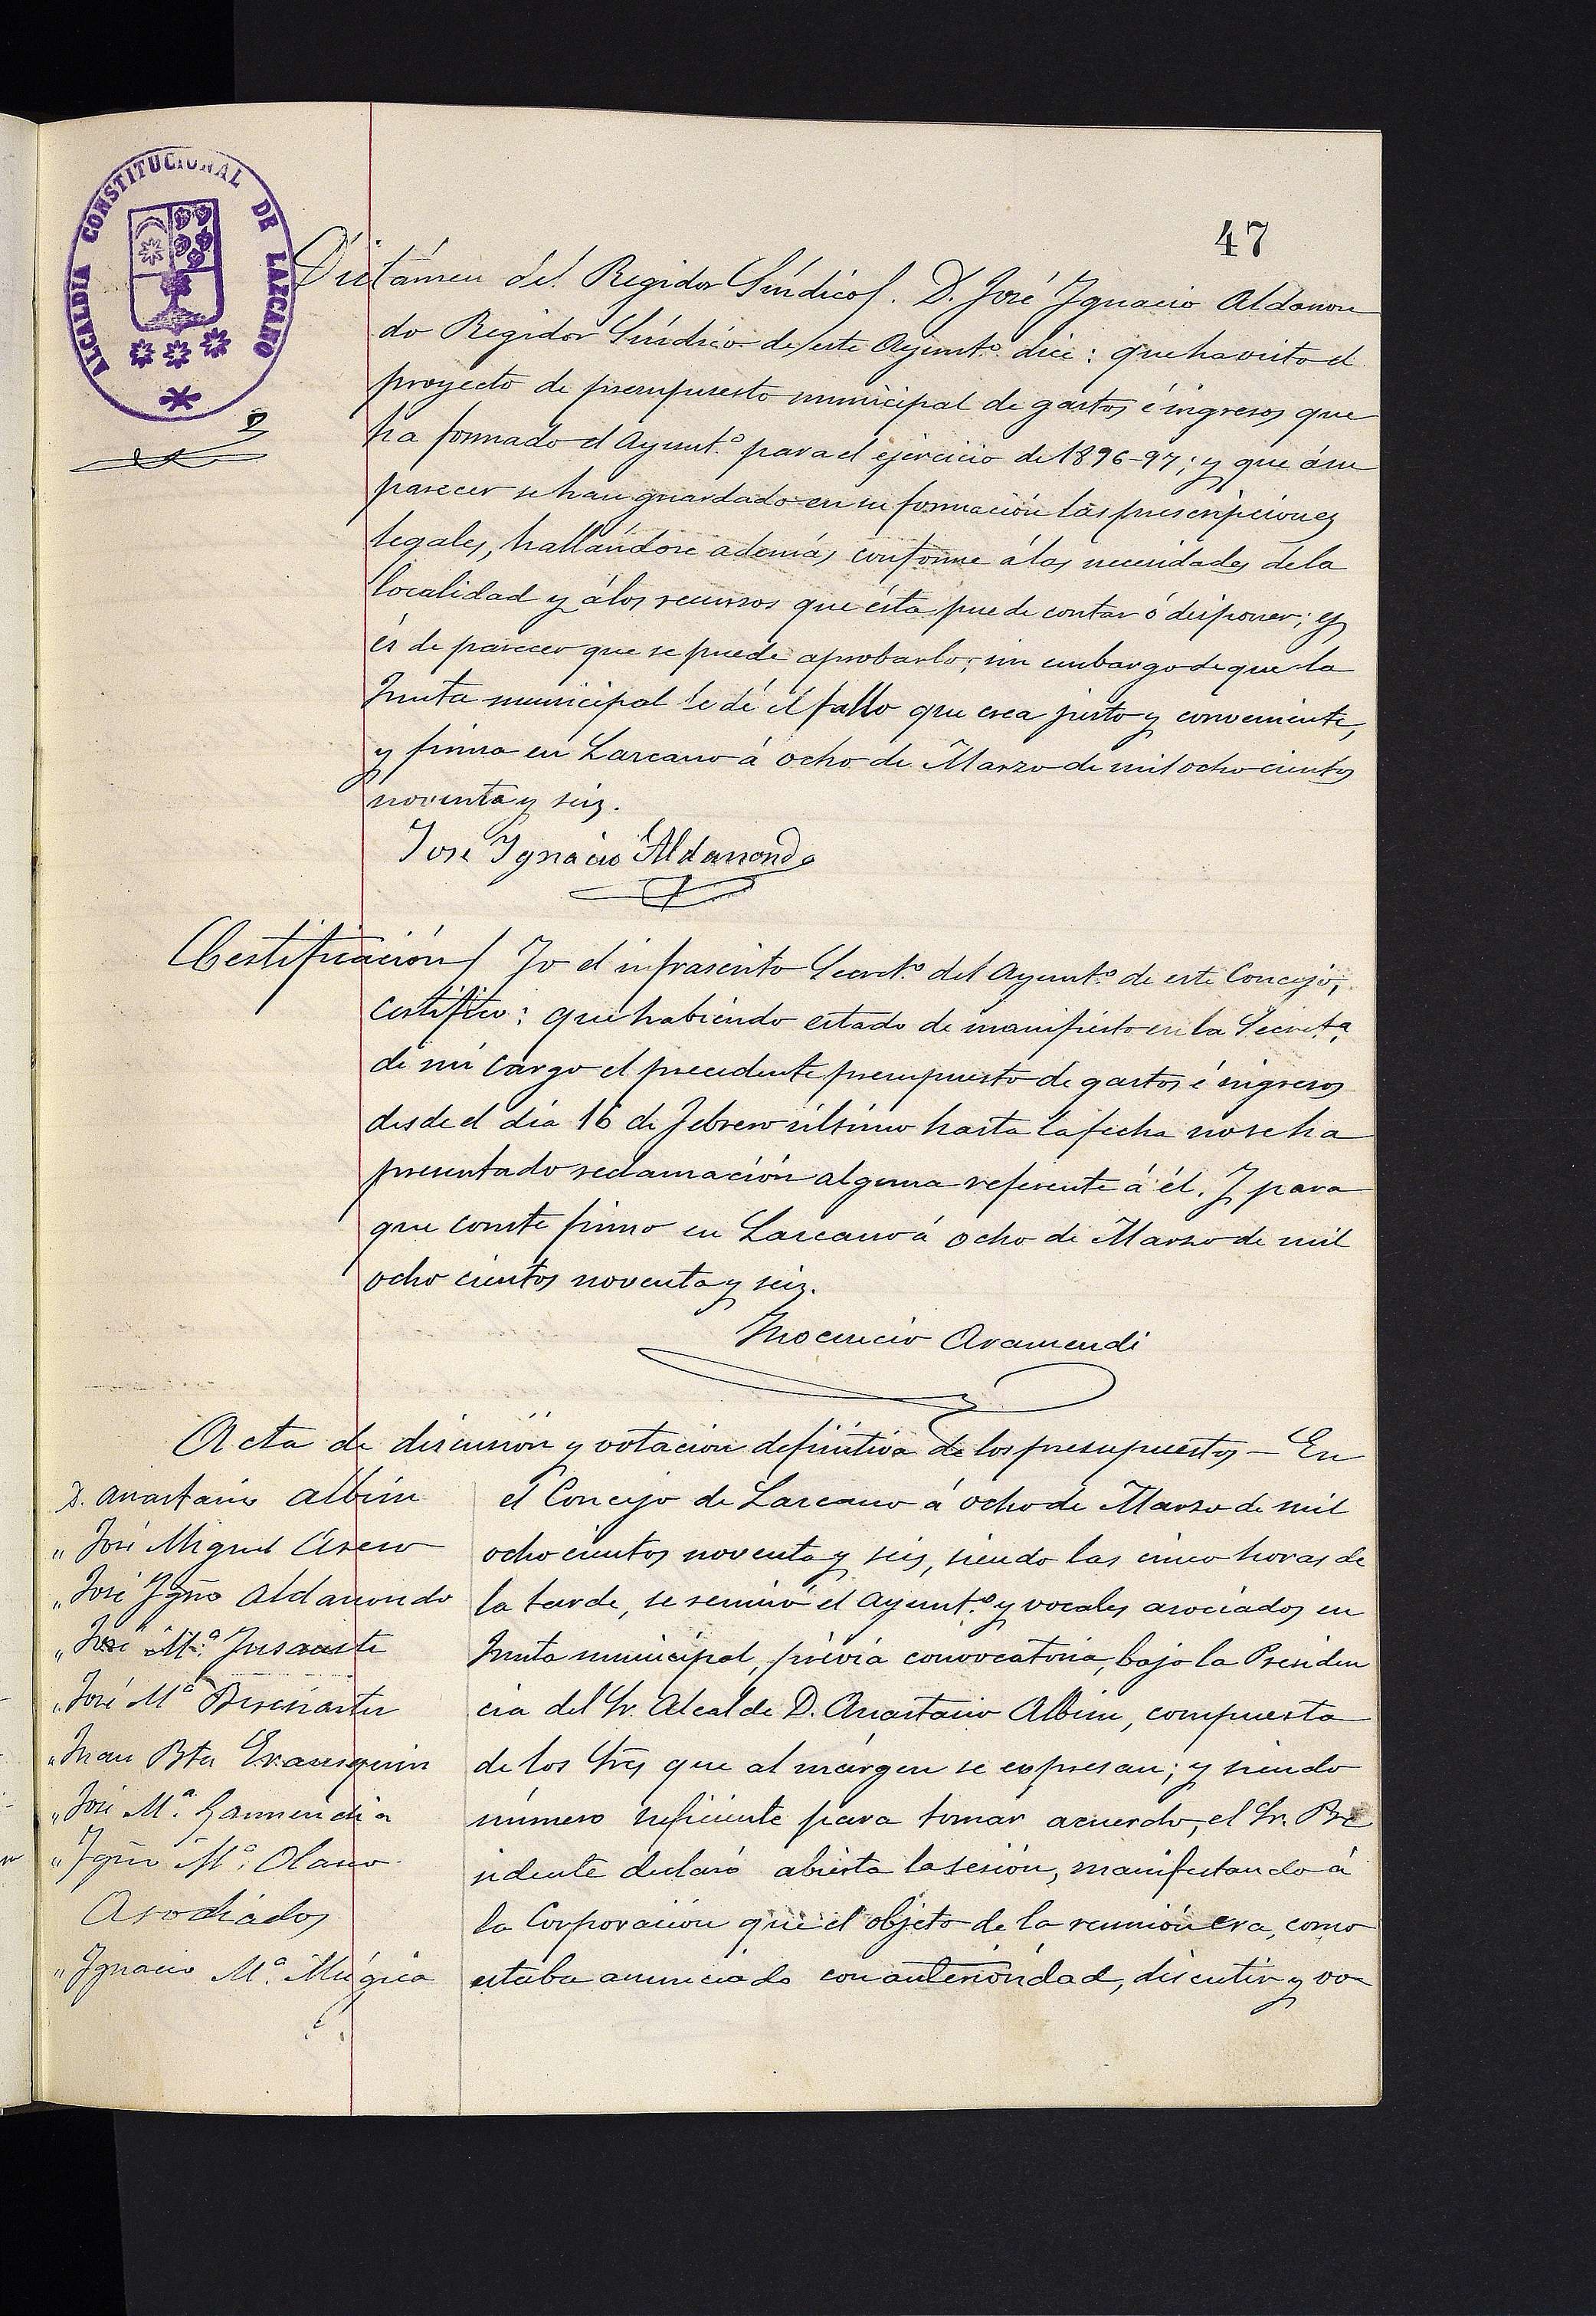 47
ALCALDIA CONSTITUCIONAL DE LAZCANO
Dictámen del Regidor Síndico/. D. José Ygnacio Aldanon
do Regidor Síndico de este Ayuntº dice: que ha visto el
proyecto de presupuesto municipal de gastos é ingresos que
ha formado el Ayuntº para el ejercicio de 1896-97; y que á su
parecer se han guardado en su formación las prescripciones
legales, hallándose además conforme á las necesidades de la
localidad y á los recursos que ésta puede contar ó disponer; y
és de parecer que se puede aprobarlo; sin embargo de que la
Junta municipal le dé el fallo que crea justo y conveniente,
y firma en Lazcano á ocho de Marzo de mil ochocientos
noventa y seis.
José Ygnacio Aldanondo
Certificación/ Yo el infrascrito Secretº del Ayuntº de este Concejo,
certifico: que habiendo estado de manifiesto en la Secretª
de mi cargo el precedente presupuesto de gastos é ingresos
desde el día 16 de Febrero último hasta la fecha no se ha
presentado reclamación alguna referente á él. Y para
que conste firmo en Lazcano á ocho de Marzo de mil
ocho cientos noventa y seis.
Ynocencio Aramendi
Acta de discusión y votación definitiva de los presupuestos - En
el Concejo de Lazcano á ocho de Marzo de mil
ocho cientos noventa y seis, siendo las cinco horas de
la tarde, se reunió el Ayuntº y vocales asociados en
Junta municipal, prévia convocatoria, bajo la Presiden
cia del Sr. Alcalde D. Anastasio Albisu, compuesta
de los Sres que al márgen se expresan; y siendo
número suficiente para tomar acuerdo, el Sr. Pre
sidente declaró abierta la sesión, manifestando á
la Corporación que el objeto de la reunión era, como
estaba anunciado con anterioridad, discutir y vo
D. Anastasio Albisu
" José Miguel
" José Ygnº Aldanondo
" José Mª Insausti
" José Mª
" Juan Bta Erausquin
" José Mª Garmendia
" Ygnº Mª Olano
Asociados
" Ygnacio Mª Múgica